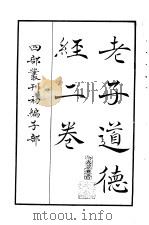 老子道德
經二卷
四部叢刊初編子部
www.toutu.com